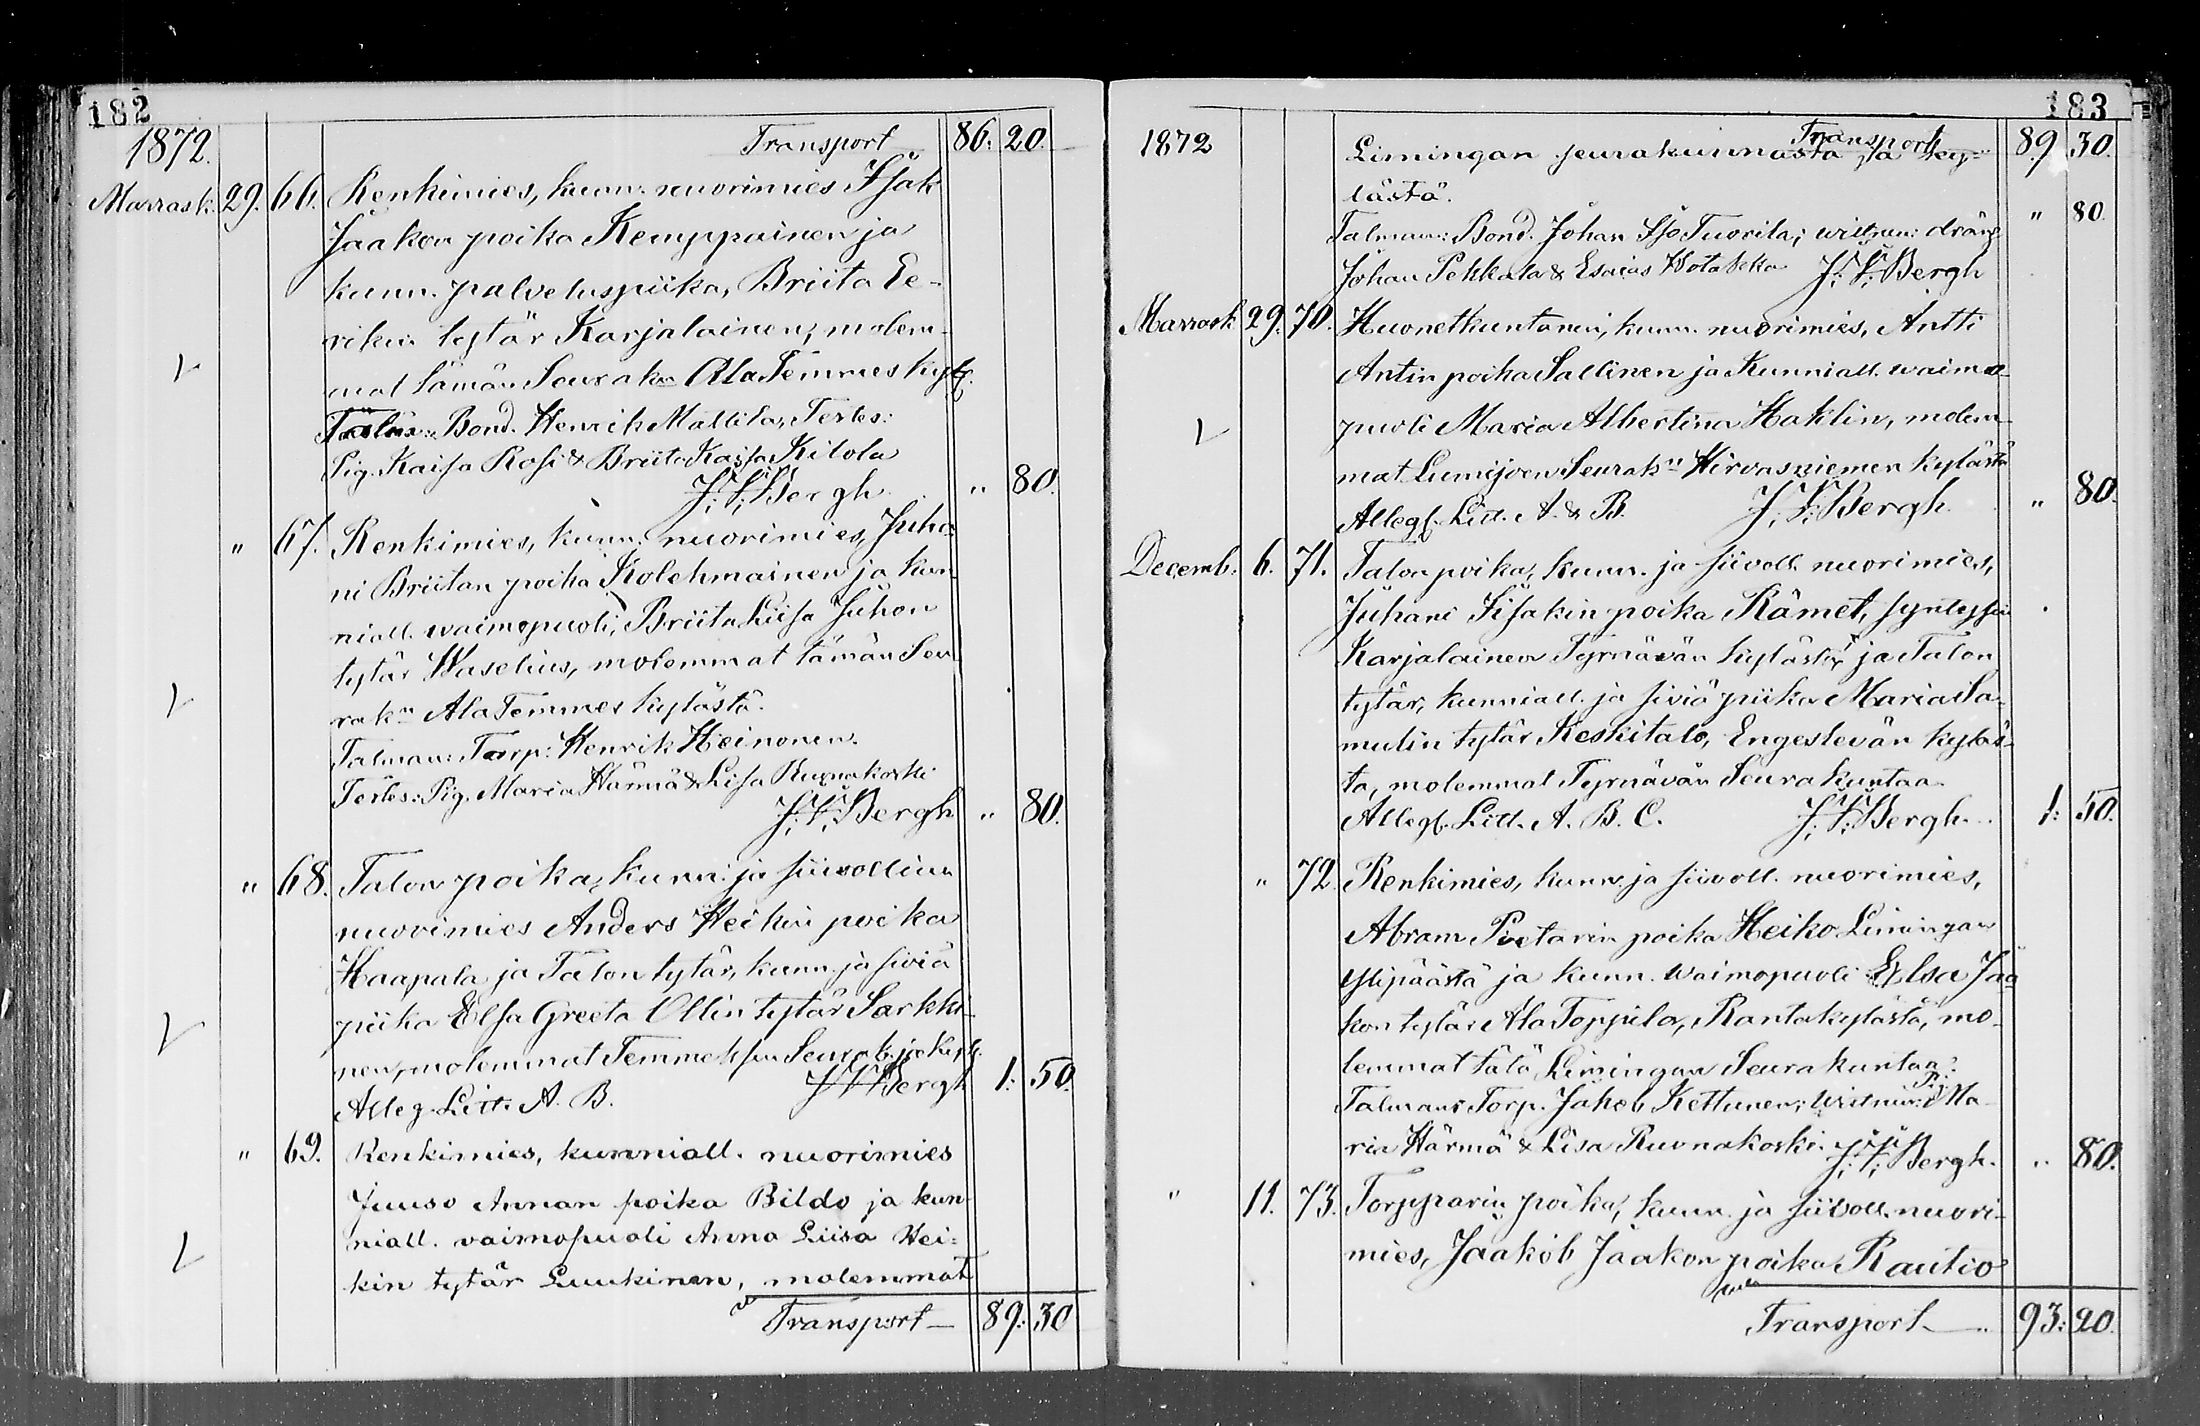 182
1872. Transport 86: 20.
Marrask. 29. 66. Renkimies, kunn. nuorimies Isak
Jaakon poika Kemppainen ja
kunn. palveluspiika, Briita Ee-
rikin tytär Karjalainen, molem-
mat tämän Seurakn Ala Temmes kyl.
Talm: Bond. Henrik Mattila, Testes:
Pig. Kaisa Rosi & Briita Kaisa Kilola
J. V. Bergh " 80.
" 67. Renkimies, kunn. nuorimies, Juha-
ni Briitan poika Kolehmainen ja kun
niall. waimopuoli, Briita Liisa Juhon
tytär Waselius, molemmat tämän Seu
rakn Ala Temmes kylästä.
Talman: Torp: Henrik Heinonen.
Testes: Pig. Maria Härmä & Lisa Ruonakoski
J. V. Bergh " 80.
" 68. Talon poika, kunn: ja siivollinen
nuorimies Anders Heikin poika
Haapala ja Talon tytär, kunn. ja siviä
piika Elsa Greeta Ollin tytär Sarkki-
nen, molemmat Temmeksen Seurak. ja kyl.
Alleg. Litt. A. B. J V Bergh 1: 50.
" 69. Renkimies, kunniall. nuorimies
Juuso Annan poika Bildo ja kun-
niall. vaimopuoli Anna Liisa Hei-
kin tytär Luukinen, molemmat
Transport 89: 30
183
1872 Transport 89 30.
Limingan seurakunnasta ja ky-
lästä.
Talman: Bond. Johan Tuorila; wittnen: dräng " 80.
Johan Pekkala & Esaias J. V. Bergh
Marrask. 29. 70. Huonetkuntanen, kunn. nuorimies, Antti
Antin poika Sallinen ja Kunniall. waimo-
puoli Maria Albertina Haklin, molem-
mat Lumijoen Seurakn Hirvasniemen kylästä
Alleg. Litt. A. & B. J. V. Bergh. " 80.
Decemb. 6. 71. Talon poika, kunn. ja siivoll. nuorimies,
Juhani Iisakin poika Rämet, syntyisin
Karjalainen Tyrnävän kylästä, ja Talon
tytär, kunniall. ja siviä piika Maria Sa-
mulin tytär Keskitalo, Engeslevän kyläs-
tä, molemmat Tyrnävän Seurakuntaa.
Alleg. Litt. A. B. C. J. V. Bergh. 1: 50.
" 72. Renkimies, kunn. ja siivoll. nuorimies,
Abram Pietarin poika Heiko Limingan
Ylipäästä ja kunn. waimopuoli Elsa Jaa
kon tytär Ala Toppila, Rantakylästä, mo-
lemmat tätä Limingan Seurakuntaa.
Talmans Torp. Jakob Kettunen; Wittnen: Pig: Ma-
ria Härmä & Lisa Ruonakoski. J. V. Bergh. " 80.
" 11. 73. Torpparin poika, kunn. ja siivoll. nuori-
mies, Jaakob Jaakon poika Rautio
Transport 93: 20.